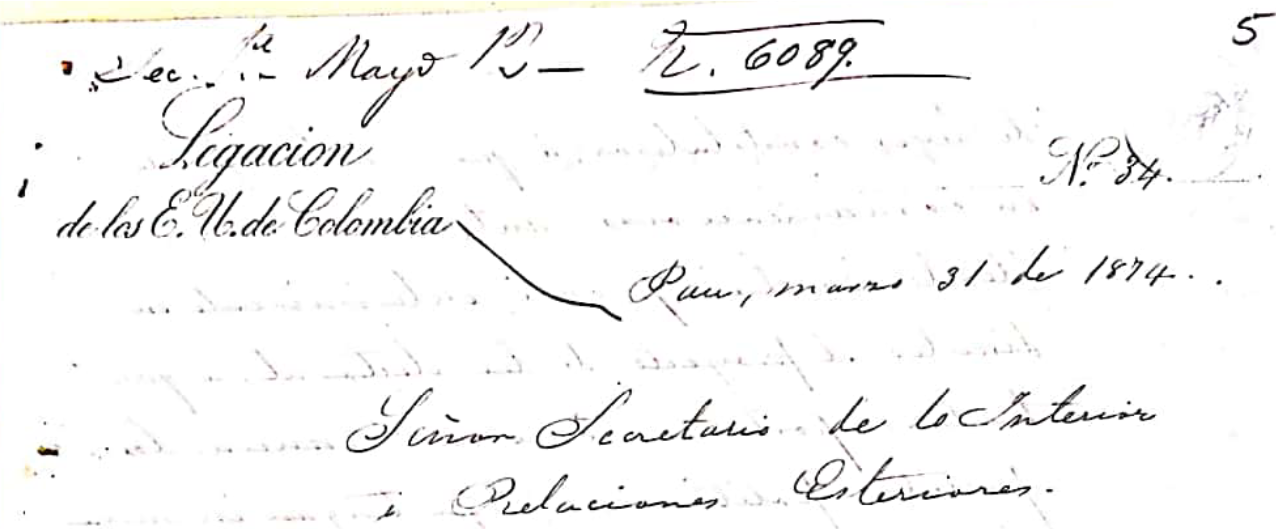 5
Sec. 1ª Mayo 12 — N. 6089.
Legacion
Nº 34.
de los E. U. de Colombia
Pau, marzo 31 de 1874.
Señor Secretario de lo Interior
i Relaciones Esteriores.